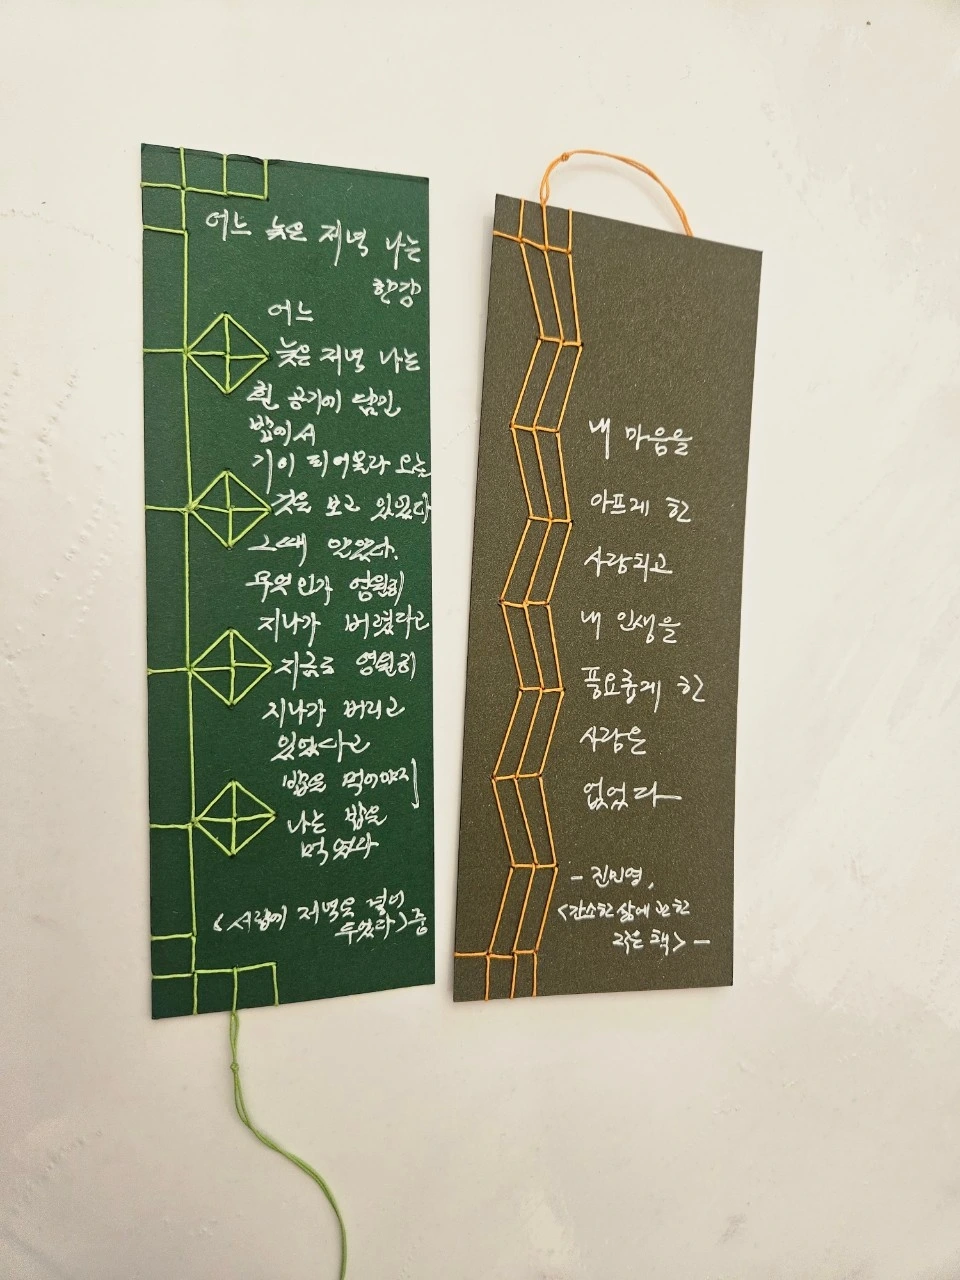 어느 늦은 저녁 나는
한강
어느
늦은 저녁 나는
흰 공기에 담긴
밥에서
김이 피어올라 오는
것을 보고 있었다
그때 알았다.
무엇인가 영원히
지나가 버렸다고
지금도 영원히
지나가 버리고
있었다고
밥을 먹어야지
나는 밥을
먹었다
<서랍에 저녁을 넣어
두었다>중
내 마음을
아프게 한
사람치고
내 인생을
풍요롭게 한
사람은
없었다
- 진민영,
<간소한 삶에 관한
작은 책> -